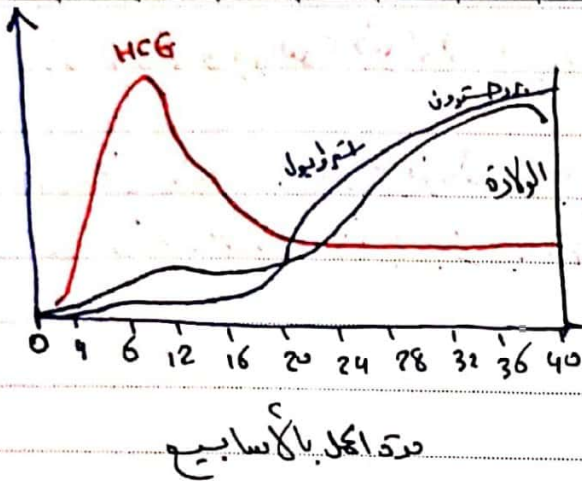 HCG
بروجسترون
استراديول
الولادة
0 4 6 12 16 20 24 28 32 36 40
مدة الحمل بالأسابيع